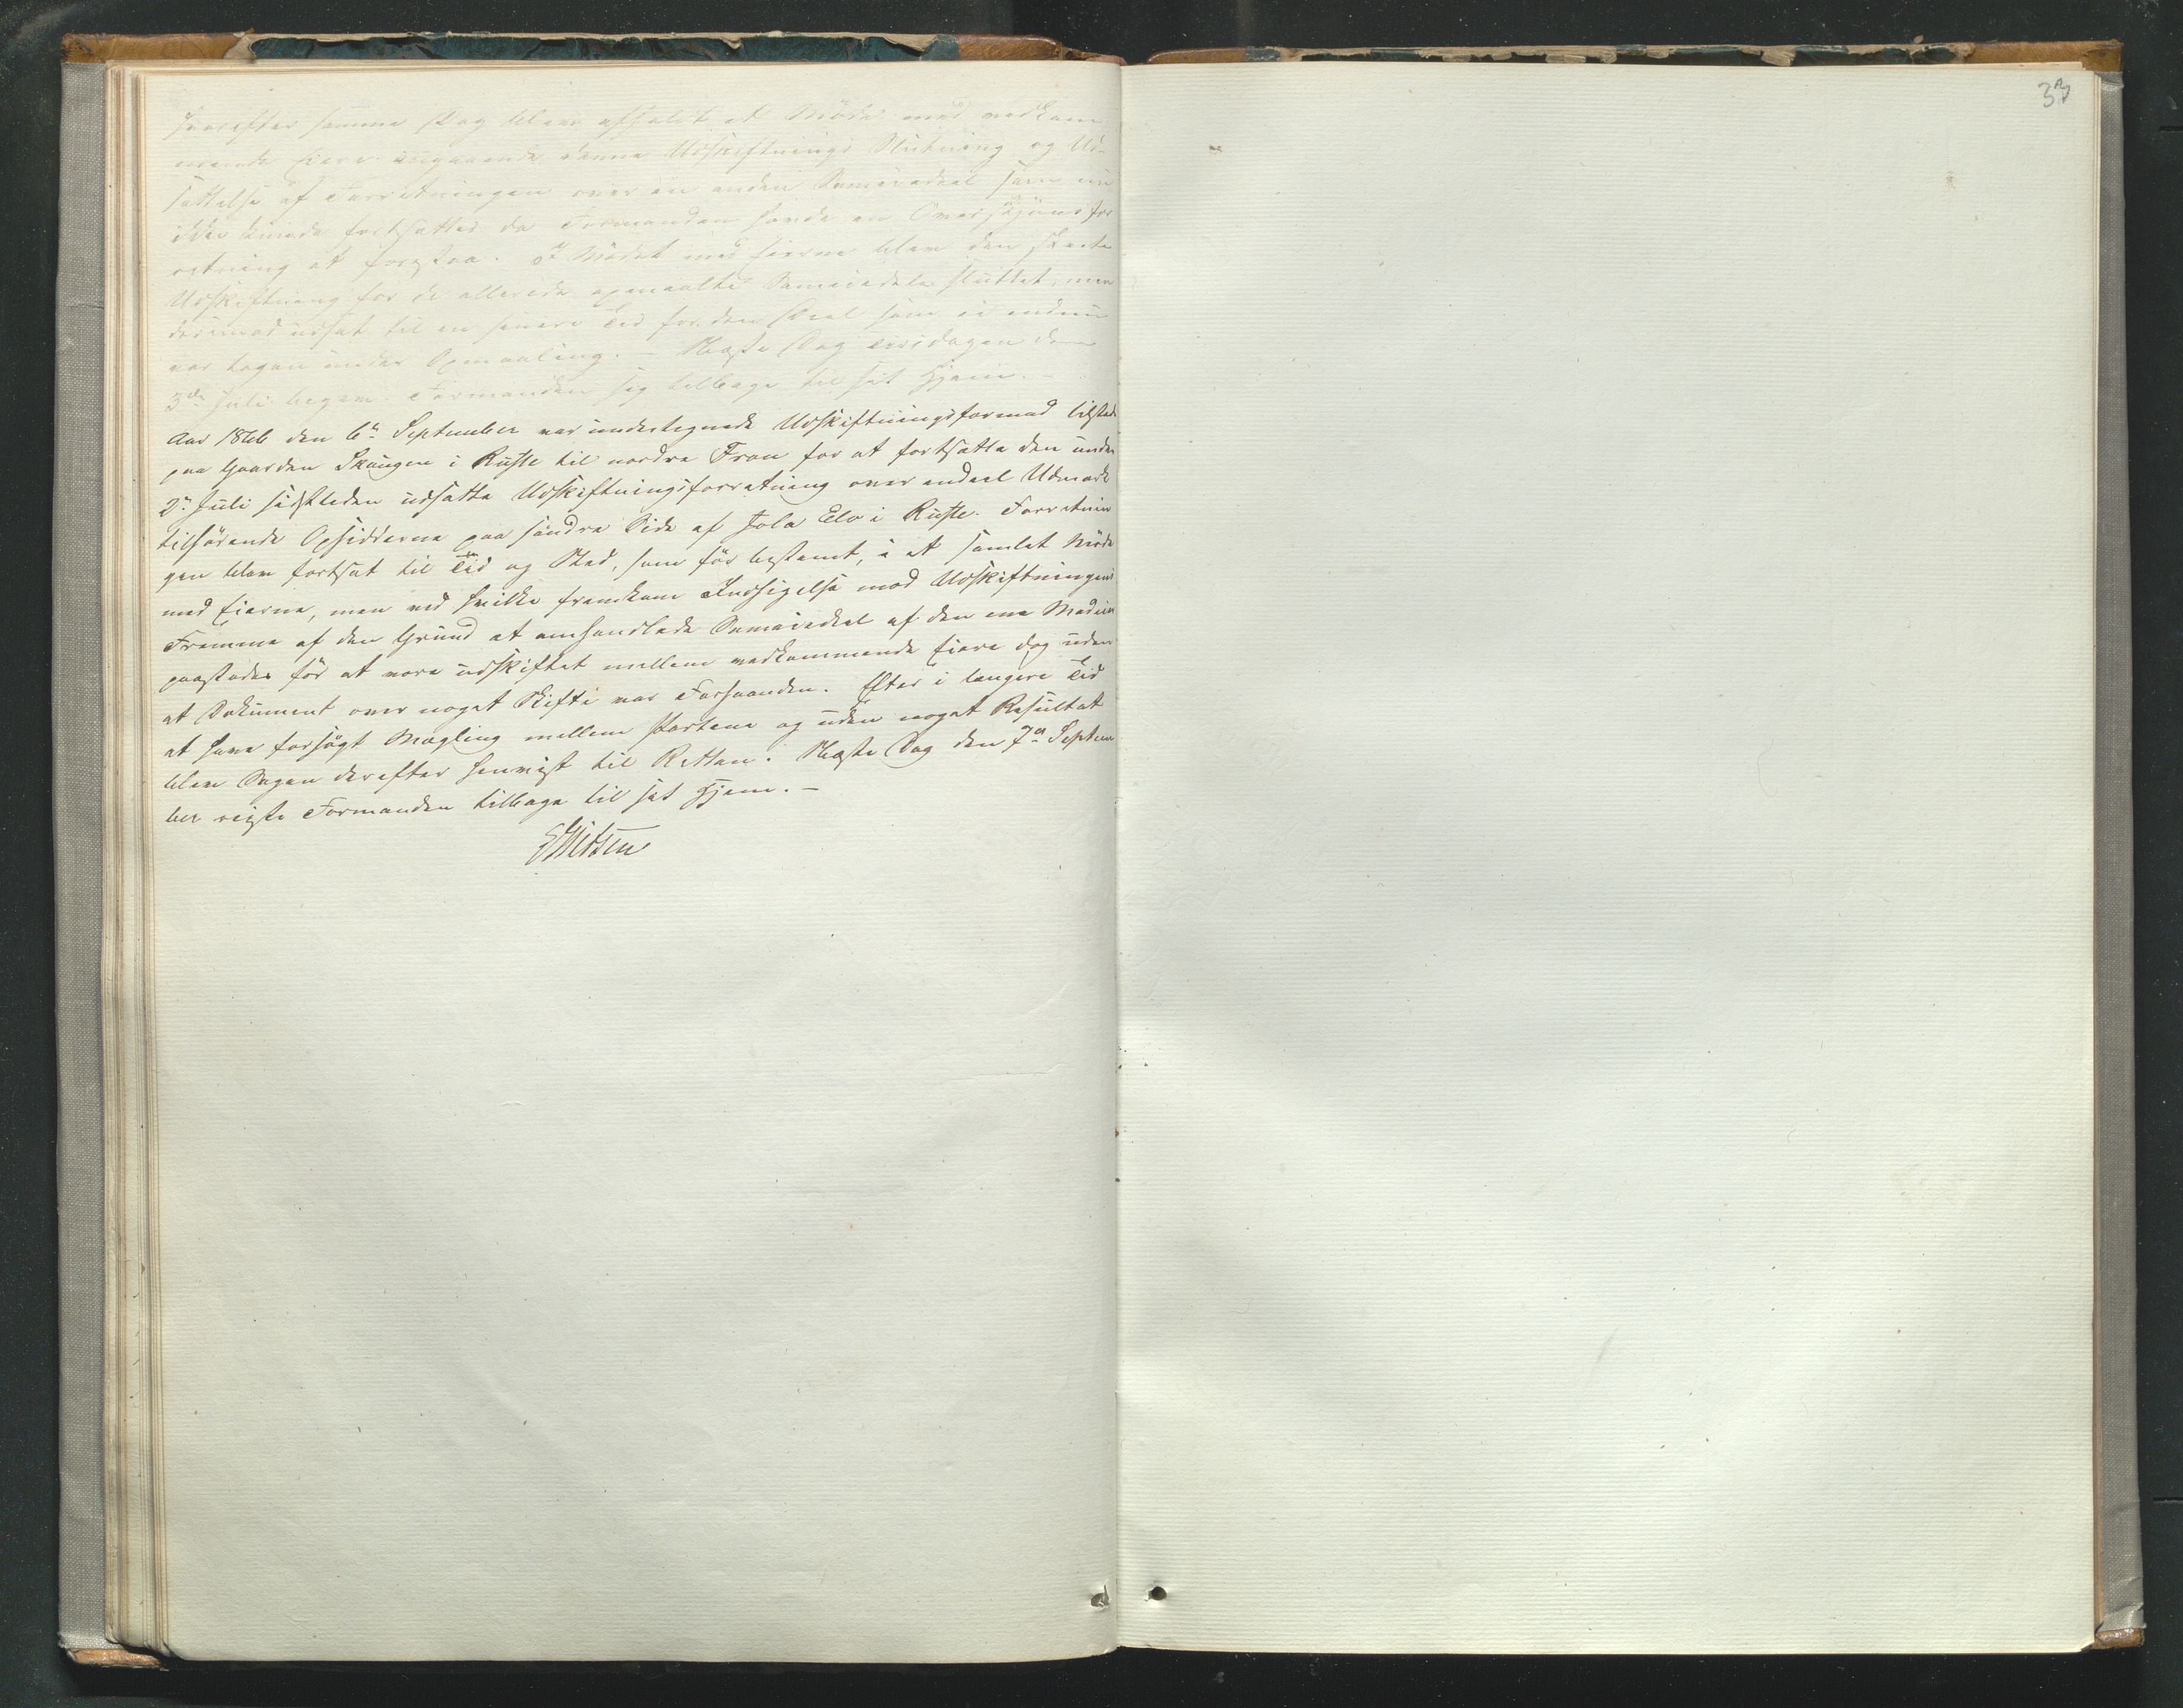 derefter samme Dag blev afholdt et Møde med vedkom
mende Eiere angaaende denne Udskiftnings Slutning og Ud-
sættelse af Forretningen over en anden Sameiedeel som nu
ikke kunde fortsættes da Formanden havde en Overskjønsfor
retning at forestaa. I Mødet med Eierne blev den skeete
Udskiftning for de allerede opmaalte Sameiedele sluttet, men
derimod udsat til en senere Tid for den Deel som ei endnu
var tagen under Opmaaling. – Næste Dag Tirsdagen den
3die Juli begav Formanden sig tilbage til sit Hjem. –
Aar 1866 den 6te September var undertegnede Udskiftningsformand tilstede
paa Gaarden Skungen i Ruste til nordre Fron for at fortsætte den under
2den Juli sidstleden udsatte Udskiftningsforretning over endeel Udmark
tilhørende Opsidderne paa søndre Side af Sola Elv i Ruste. Forretnin
gen blev fortsat til Tid og Sted, som før bestemt, i et samlet Møde
med Eierne, men ved hvilke fremkom Indsigelse mod Udskiftningens
Fremme af den Grund at omhandlede Sameiedeel af den ene
paastodes før at være udskiftet mellem vedkommende Eiere dog uden
at Dokument over noget Skifte var Forhaanden. Efter i længere Tid
at have forsøgt Mægling mellem Parterne og uden noget Resultat
blev Sagen derefter henvist til Retten. Næste Dag den 7de Septem
ber reiste Formanden tilbage til sit Hjem. –
33